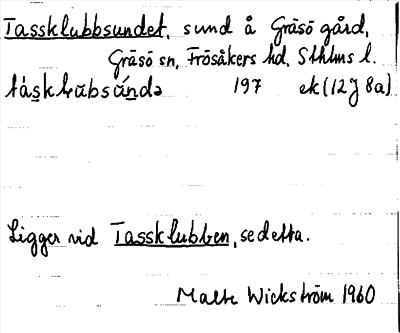 Tassklubbsundet, sund å Gräsö gård,
Gräsö sn, Frösåkers hd, Sthlms l.
197 ek (12J 8a)
Ligger vid Tassklubben, se detta.
Malte Wickström 1960